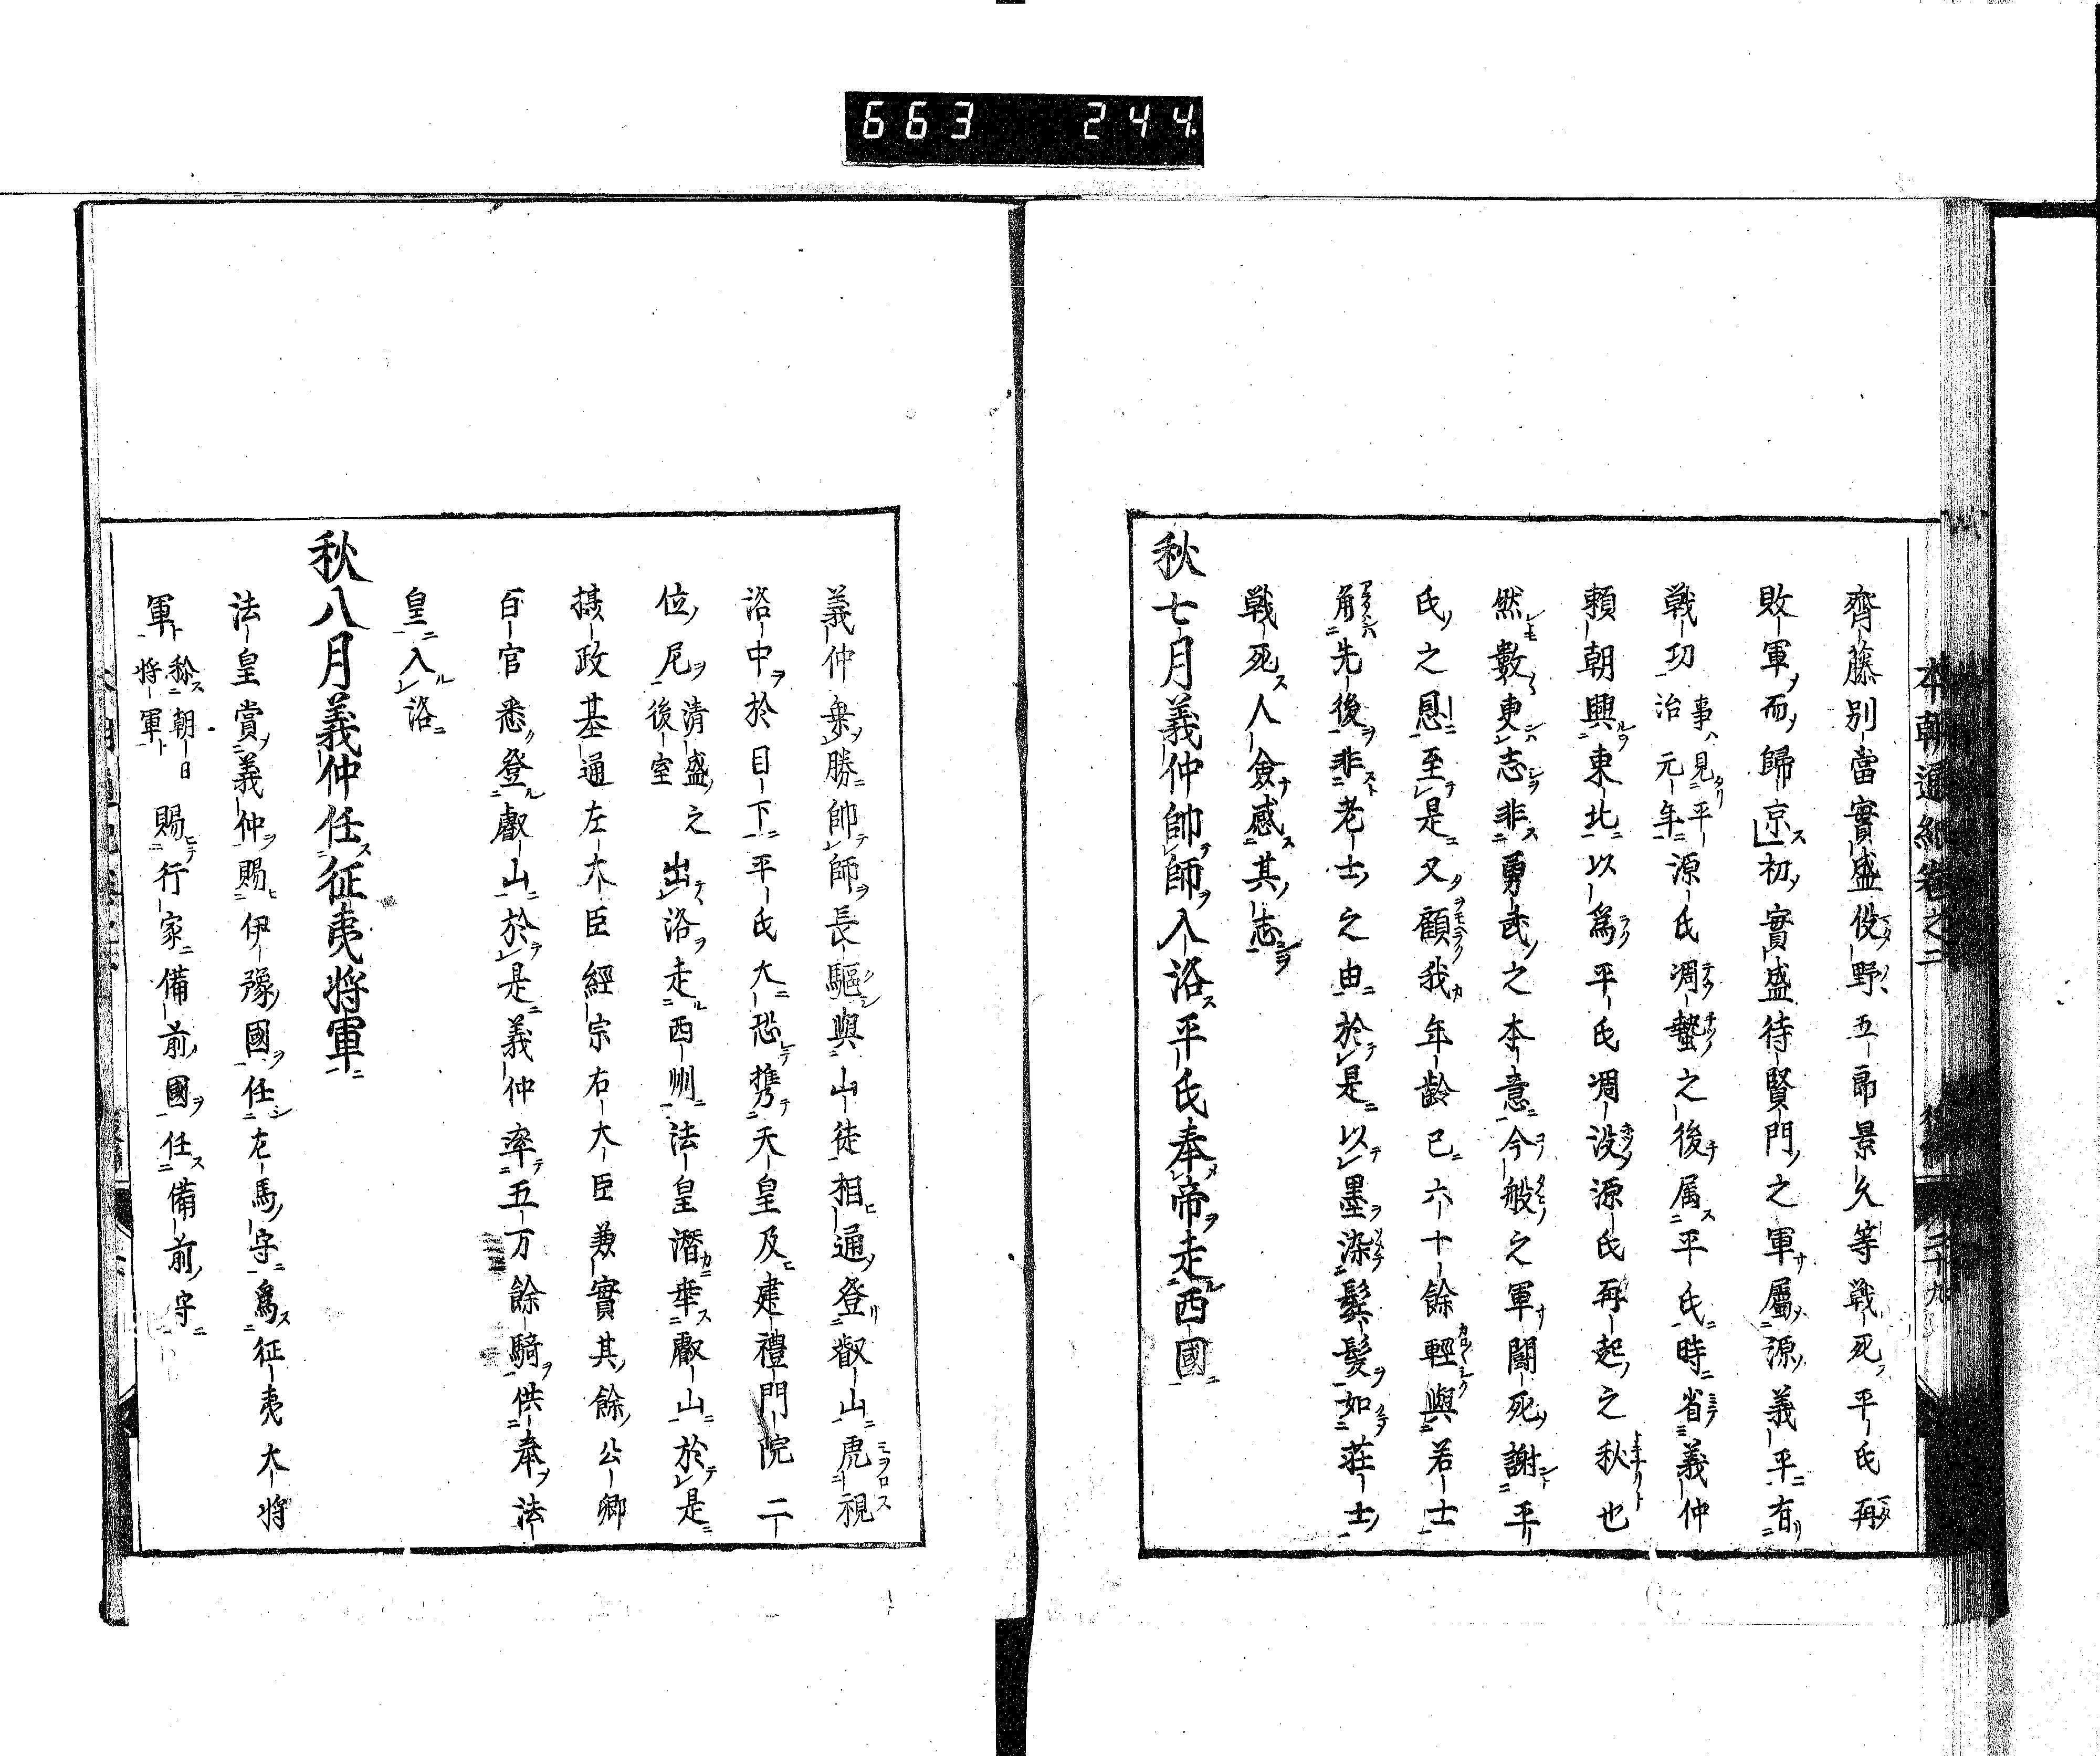 663 244
本朝通紀卷之二
齊藤別當實盛伇野五郎景久等戰死平氏再
敗軍而歸京初實盛待賢門之軍屬源義平有
戰功事見平治元年源氏凋蟄之後属平氏時省義仲
頼朝興東北以爲平氏凋没源氏再起之秋也
然數更志非勇武之本意今般之軍鬪死謝平
氏之恩至是又顧我年齡已六十餘輕與若士
角先後非老士之由於是以墨染鬢髮如莊士
戰死人僉感其志
秋七月義仲帥師入洛平氏奉帝走西國
義仲乗勝帥師長驅與山徒相通登叡山虎視
洛中於目下平氏大恐携天皇及建禮門院二
位尼清盛之後室出洛走西州法皇潛幸叡山於是
攝政基通左大臣經宗右大臣兼實其餘公卿
百官悉登叡山於是義仲率五万餘騎供奉法
皇入洛
秋八月義仲任征夷將軍
法皇賞義仲賜伊豫國任左馬守爲征夷大將
軍稱朝日將軍賜行家備前國任備前守